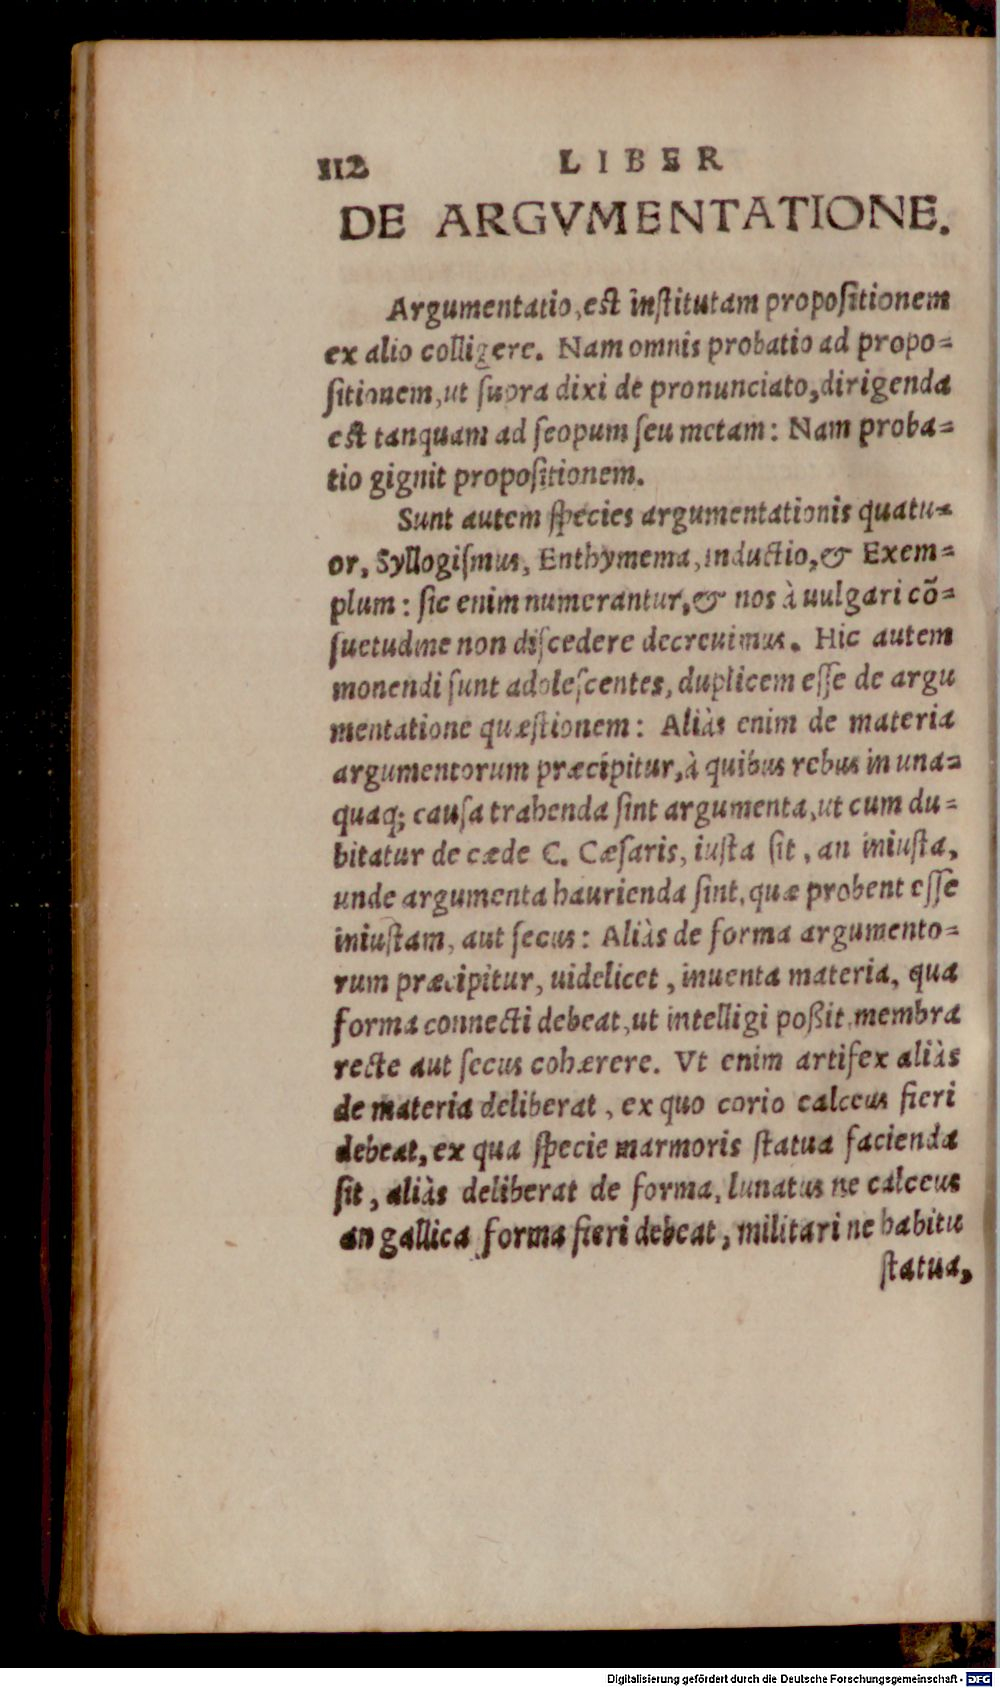 112 LIBER
DE ARGVMENTATIONE.
Argumentatio, est institutam propositionem
ex alio colligere. Nam omnis probatio ad propo=
sitionem, ut supra dixi de pronunciato, dirigenda
est tanquam ad scopum seu metam: Nam proba=
tio gignit propositionem.
Sunt autem species argumentationis quatu=
or, Syllogismus, Enthymema, inductio, & Exem=
plum: sic enim numerantur, & nos à uulgari cõ=
suetudine non discedere decreuimus. Hic autem
monendi sunt adolescentes, duplicem esse de argu
mentatione quæstionem: Aliàs enim de materia
argumentorum præcipitur, à quibus rebus in una=
quaq; causa trahenda sint argumenta, ut cum du=
bitatur de cæde C. Cæsaris, iusta sit, an iniusta,
unde argumenta haurienda sint, quæ probent esse
iniustam, aut secus: Aliàs de forma argumento=
rum præcipitur, uidelicet, inuenta materia, qua
forma connecti debeat, ut intelligi poßit, membra
recte aut secus cohærere. Vt enim artifex aliàs
de materia deliberat, ex quo corio calceus fieri
debeat, ex qua specie marmoris statua facienda
sit, aliàs deliberat de forma, lunatus ne calceus
an gallica forma fieri debeat, militari ne habitu
statua,
Digitalisierung gefördert durch die Deutsche Forschungsgemeinschaft - DFG